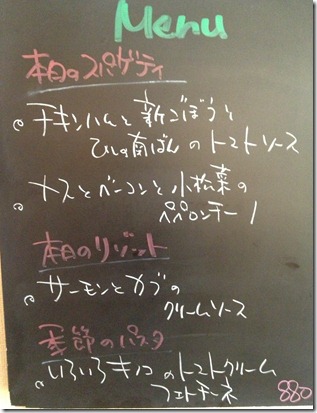 Menu
本日のスパゲティ
チキンハムと新ごぼうと
の トマトソース
ナスとベーコンと小松菜の
ペペロンチーノ
本日のリゾット
サーモンとカブの
クリームソース
季節のパスタ
いろいろキノコのトマトクリーム
フェトチーネ
880